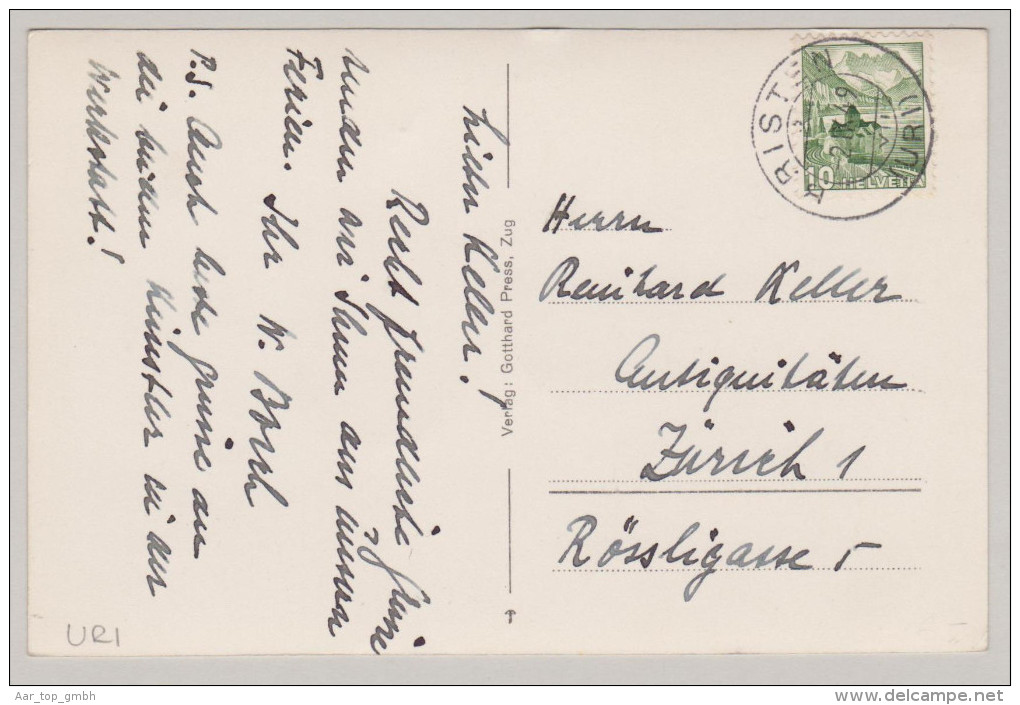 Lieber Keller!
Recht freundliche Grüsse
senden wir Ihnen aus unsern
Ferien. Ihr W. Bosch
P.S. Auch beste Grüsse an
die beiden Künstler in der
Werkstatt!
Verlag: Gotthard Press, Zug
BRISTEN
(URI)
10
HELVETIA
Herrn
Reinhard Keller
Antiquitäten
Zürich 1
Rössligasse 5
URI
Aar_top_gmbh
www.delcampe.net